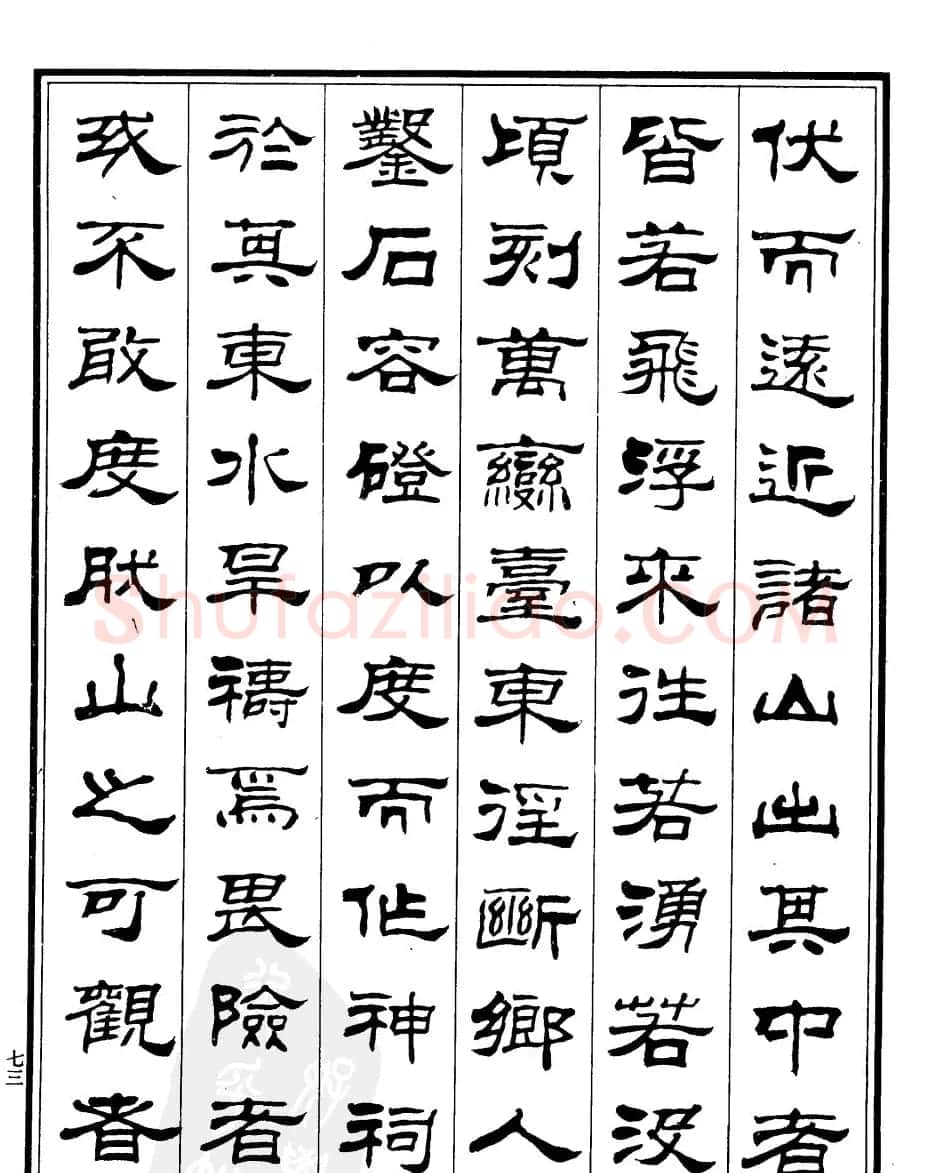 伏而遠近諸山出其中者
皆若飛浮來往若湧若没
頃刻萬變臺東徑斷鄉人
鑿石容磴以度而作神祠
於其東水旱禱焉畏險者
或不敢度然山之可觀者
七三
Shufaziliao.COM